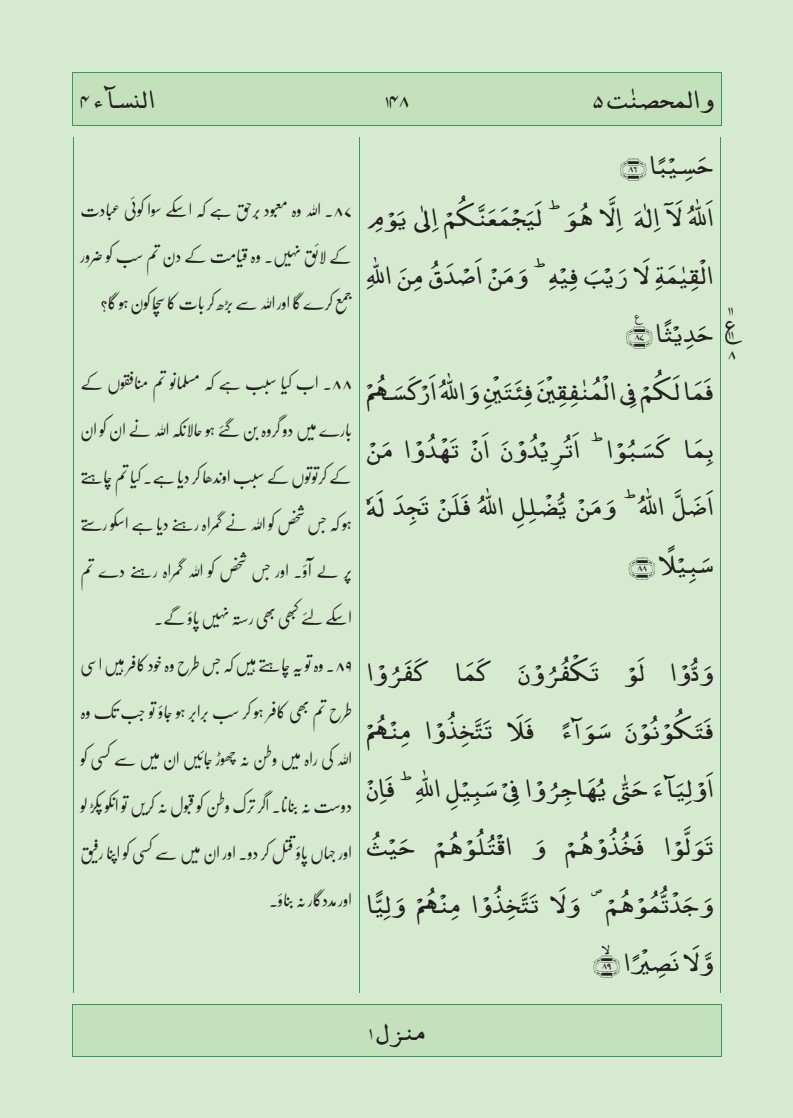 والمحصنٰت ۵
۱۴۸
النسآء ۴
حَسِيْبًا ﴿۸۶﴾
اَللّٰهُ لَاۤ اِلٰهَ اِلَّا هُوَ ؕ لَيَجْمَعَنَّكُمْ اِلٰى يَوْمِ
الْقِيٰمَةِ لَا رَيْبَ فِيْهِ ؕ وَمَنْ اَصْدَقُ مِنَ اللّٰهِ
حَدِيْثًا ﴿۸۷﴾ ع
۱۱
ع
۱۱
۸
فَمَا لَكُمْ فِى الْمُنٰفِقِيْنَ فِئَتَيْنِ وَاللّٰهُ اَرْكَسَهُمْ
بِمَا كَسَبُوْا ؕ اَتُرِيْدُوْنَ اَنْ تَهْدُوْا مَنْ
اَضَلَّ اللّٰهُ ؕ وَمَنْ يُّضْلِلِ اللّٰهُ فَلَنْ تَجِدَ لَهٗ
سَبِيْلًا ﴿۸۸﴾
وَدُّوْا لَوْ تَكْفُرُوْنَ كَمَا كَفَرُوْا
فَتَكُوْنُوْنَ سَوَآءً فَلَا تَتَّخِذُوْا مِنْهُمْ
اَوْلِيَآءَ حَتّٰى يُهَاجِرُوْا فِىْ سَبِيْلِ اللّٰهِ ؕ فَاِنْ
تَوَلَّوْا فَخُذُوْهُمْ وَ اقْتُلُوْهُمْ حَيْثُ
وَجَدْتُّمُوْهُمْ ۖ وَلَا تَتَّخِذُوْا مِنْهُمْ وَلِيًّا
وَّلَا نَصِيْرًا ﴿۸۹﴾ ۙ
۸۷۔ اللہ وہ معبود برحق ہے کہ اسکے سوا کوئی عبادت
کے لائق نہیں۔ وہ قیامت کے دن تم سب کو ضرور
جمع کرے گا اور اللہ سے بڑھ کر بات کا سچا کون ہو گا؟
۸۸۔ اب کیا سبب ہے کہ مسلمانو تم منافقوں کے
بارے میں دو گروہ بن گئے ہو حالانکہ اللہ نے ان کو ان
کے کرتوتوں کے سبب اوندھا کر دیا ہے۔ کیا تم چاہتے
ہو کہ جس شخص کو اللہ نے گمراہ رہنے دیا ہے اسکو رستے
پر لے آؤ۔ اور جس شخص کو اللہ گمراہ رہنے دے تم
اسکے لئے کبھی بھی رستہ نہیں پاؤ گے۔
۸۹۔ وہ تو یہ چاہتے ہیں کہ جس طرح وہ خود کافر ہیں اسی
طرح تم بھی کافر ہو کر سب برابر ہو جاؤ تو جب تک وہ
اللہ کی راہ میں وطن نہ چھوڑ جائیں ان میں سے کسی کو
دوست نہ بنانا۔ اگر ترک وطن کو قبول نہ کریں تو انکو پکڑ لو
اور جہاں پاؤ قتل کر دو۔ اور ان میں سے کسی کو اپنا رفیق
اور مددگار نہ بناؤ۔
منزل ۱